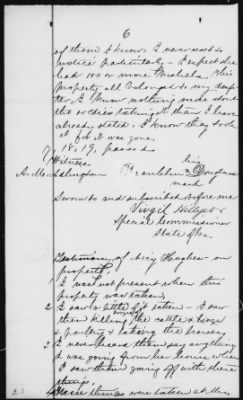 6
of them I know. I never used to
notice particularly - I expect she
had 100 or more bushels. This
property all belonged to my daugh-
ter. I know nothing more about
the soldiers taking it than I have
already stated. I know they took
it for it was gone.
7, 18, 19, passed
Witness
his
Franklin Douglass
mark
Sworn to and subscribed before me
Virgil Hillyer
Special Commissioner
State of Ga.
Testimony of Hughes on
property.
1 I was not present when this
property was taken.
2 I saw a little of it taken - I saw
them killing the cattle & hogs
& poultry & taking the horses
3 I never heard them say anything
I was going from her house when
I saw them going off with these
things.
things was taken at